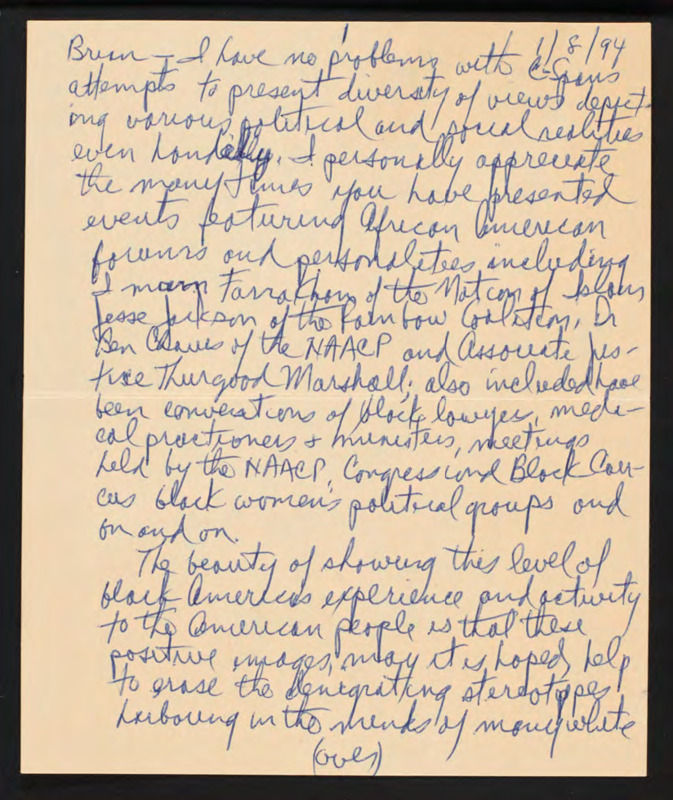 1/8/94
Brian - I have no problems with C-Spans
attempts to present diversity of views depict-
ing various political and social realities
even handedly. I personally appreciate
the many times you have presented
events featuring African American
forums and personalities including
Farrakhan of the Nation of Islam
Jesse Jackson of the Rainbow Coalition, Dr
Ben Chavis of the NAACP and Associate jus-
tice Thurgood Marshall; also included have
been conversations of black lawyers, medi-
cal practioners & ministers, meetings
held by the NAACP, Congressional Black Cau-
cus black women's political groups and
on and on.
The beauty of showing this level of
black Americas experience and activity
to the American people is that these
positive images, may it is hoped, help
to erase the denigrating stereotypes
harboring in the minds of many white
(over)